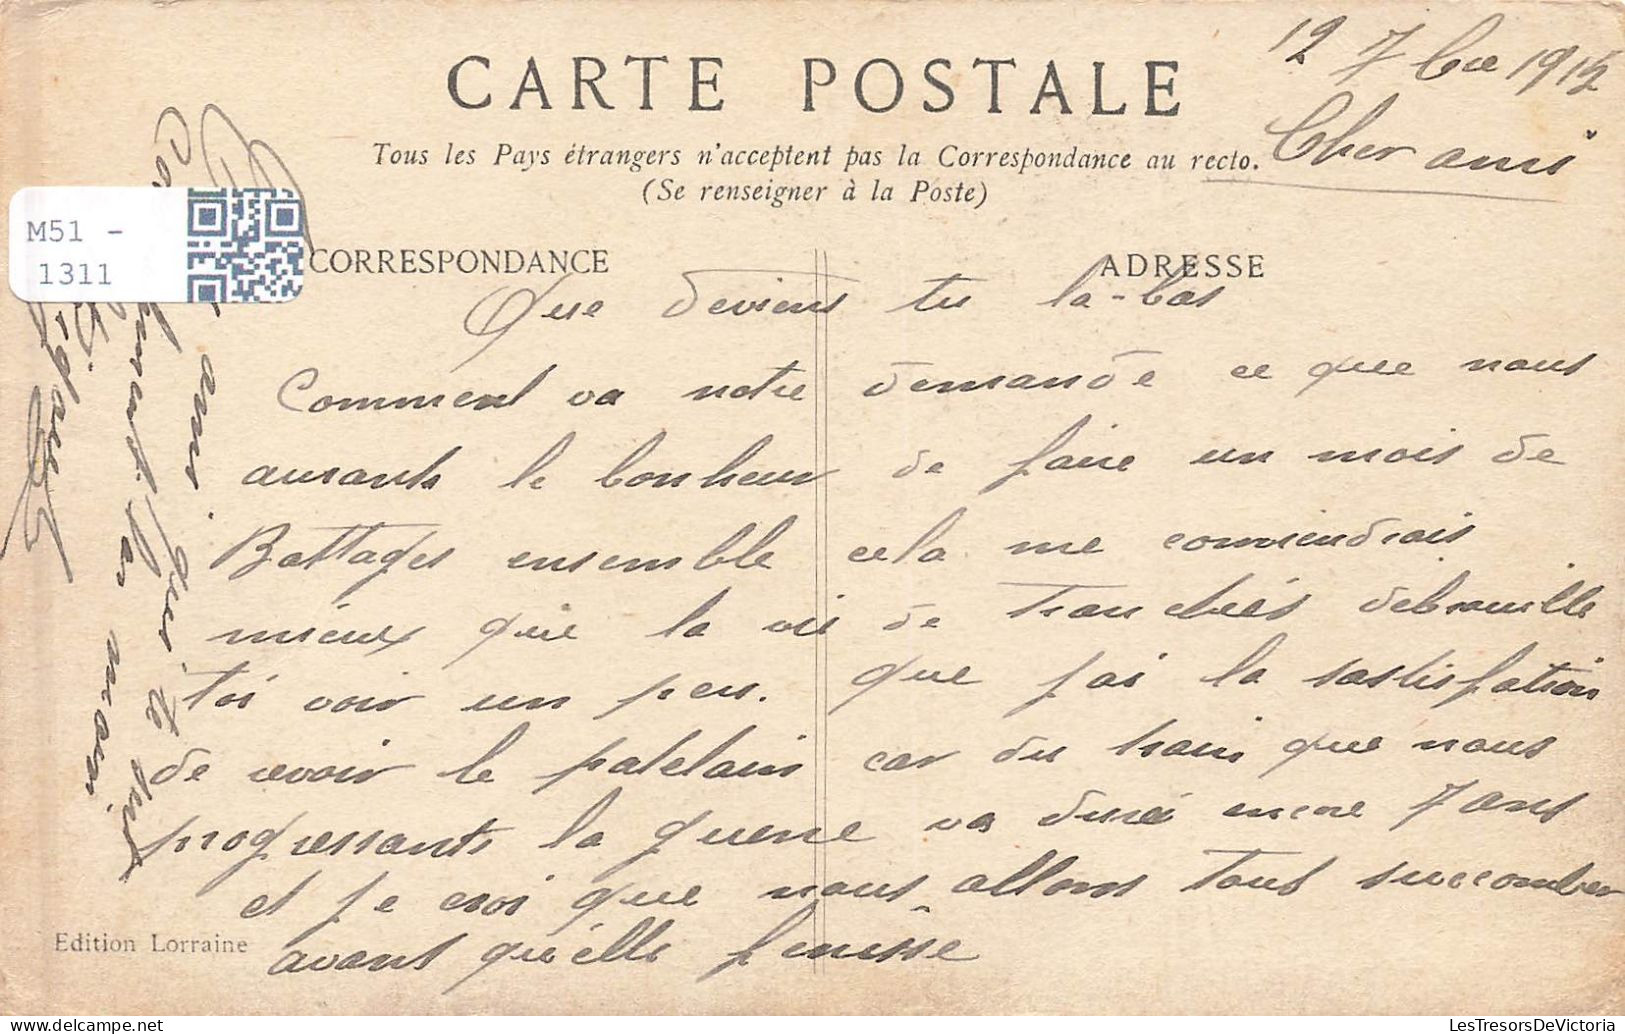 12 7bre 1915
CARTE POSTALE
Tous les Pays étrangers n'acceptent pas la Correspondance au recto.
(Se renseigner à la Poste)
Cher ami
M51 -
1311
CORRESPONDANCE
ADRESSE
Que deviens tu la-bas
Comment va notre demande ce que nous
aurants le bonheur de faire un mois de
Battages ensemble cela me conviendrais
mieux que la vie de tranchées debrouille
toi voir un peu. que j'ai la sastisfation
de revoir le patelain car du train que nous
progressants la guerre va duré encore 7 ans
et je croi que nous allons tous succomber
avant qu'elle finisse
ami qui te sert
la main
Edition Lorraine
LesTresorsDeVictoria